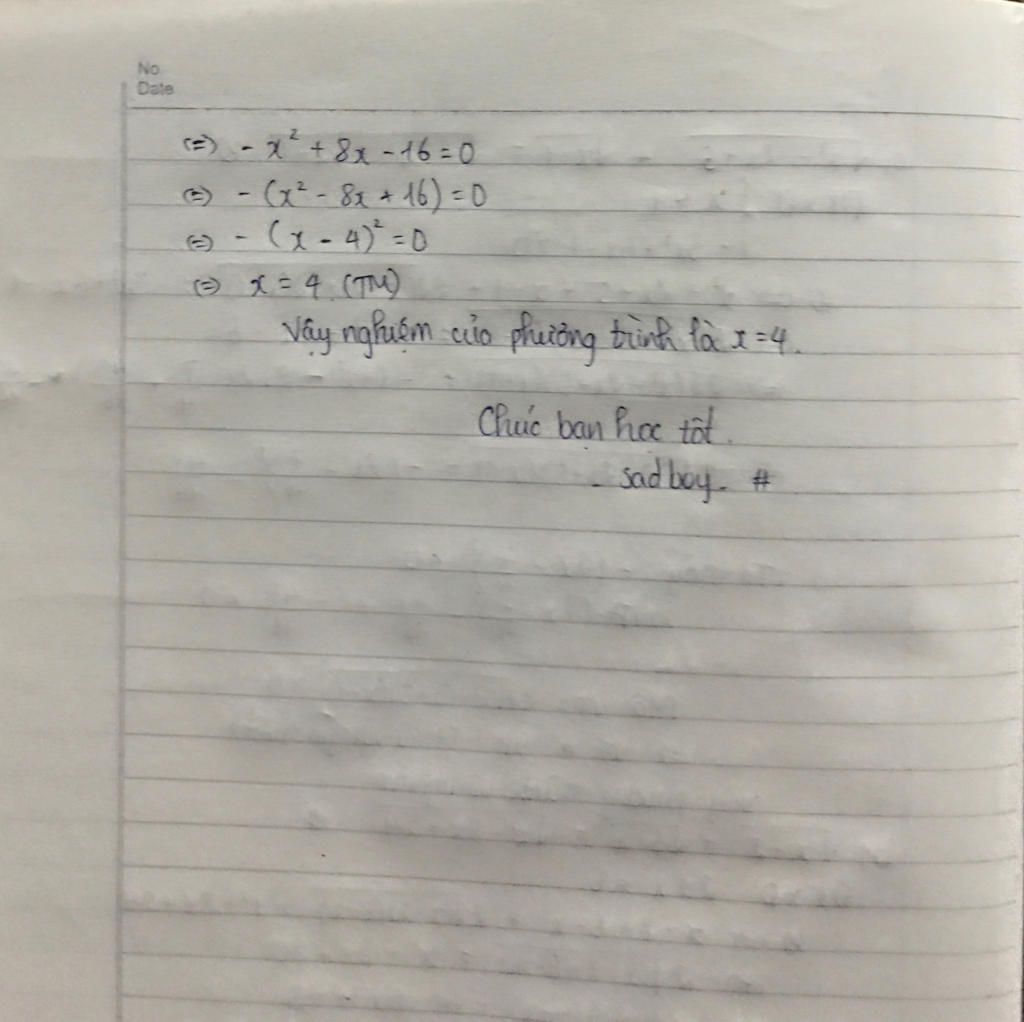 No
Date
(=) - x² + 8x - 16 = 0
(=) - (x² - 8x + 16) = 0
(=) - (x - 4)² = 0
(=) x = 4 (TM)
Vậy nghiệm của phương trình là x = 4.
Chúc bạn học tốt.
- sadboy - #